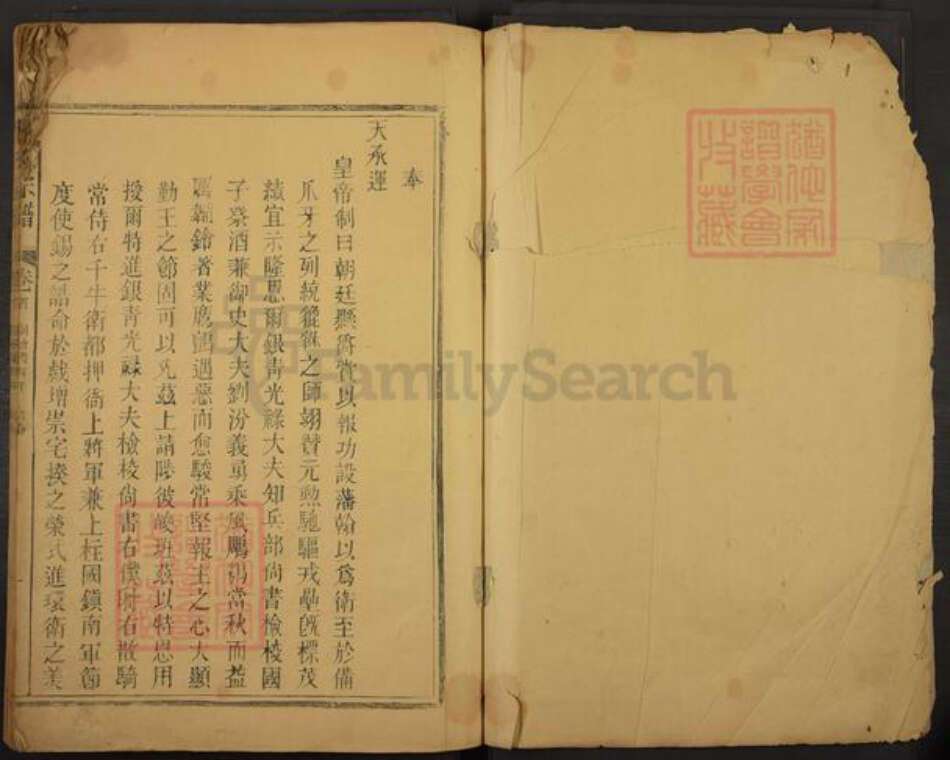 奉
天承運
皇帝制曰朝廷懸爵賞以報功設藩翰以爲衛至於備
爪牙之列統貔貅之師翊賛元勲馳驅戎壘旣標茂
績宜示隆恩爾銀青光祿大夫知兵部尚書檢校國
子祭酒兼御史大夫劉汾義勇乘風鵰鶚當秋而益
厲韜鈐著業鷹鸇遇惡而愈駿常堅報主之心大顯
勤王之節固可以允茲上請陟彼峻班茲以特恩用
授爾特進銀青光祿大夫檢校尚書右僕射右散騎
常侍右千牛衛都押衙上將軍兼上柱國鎮南軍節
度使錫之誥命於戲增崇宅揆之榮式進環衛之美
宗譜
卷一
譜學會
收藏
FamilySearch